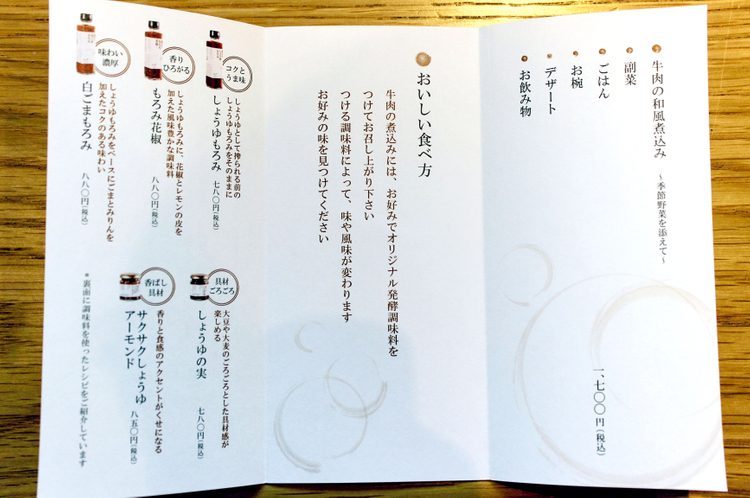 牛肉の和風煮込み 〜季節野菜を添えて〜
副菜
ごはん
お椀
デザート
お飲み物
一、七〇〇円(税込)
おいしい食べ方
牛肉の煮込みには、お好みでオリジナル発酵調味料を
つけてお召し上がり下さい
つける調味料によって、味や風味が変わります
お好みの味を見つけてください
コクと
うま味
しょうゆとして搾られる前の
しょうゆもろみをそのままに
しょうゆもろみ 七八〇円(税込)
香り
ひろがる
しょうゆもろみに、花椒とレモンの皮を
加えた風味豊かな調味料
もろみ花椒 八八〇円(税込)
味わい
濃厚
しょうゆもろみをベースにごまとみりんを
加えたコクのある味わい
白ごまもろみ 八八〇円(税込)
具材
ごろごろ
大豆や大麦のごろごろとした具材感が
楽しめる
しょうゆの実 七八〇円(税込)
香ばし
具材
香りと食感のアクセントがくせになる
サクサクしょうゆ
アーモンド 八五〇円(税込)
*裏面に調味料を使ったレシピをご紹介しています